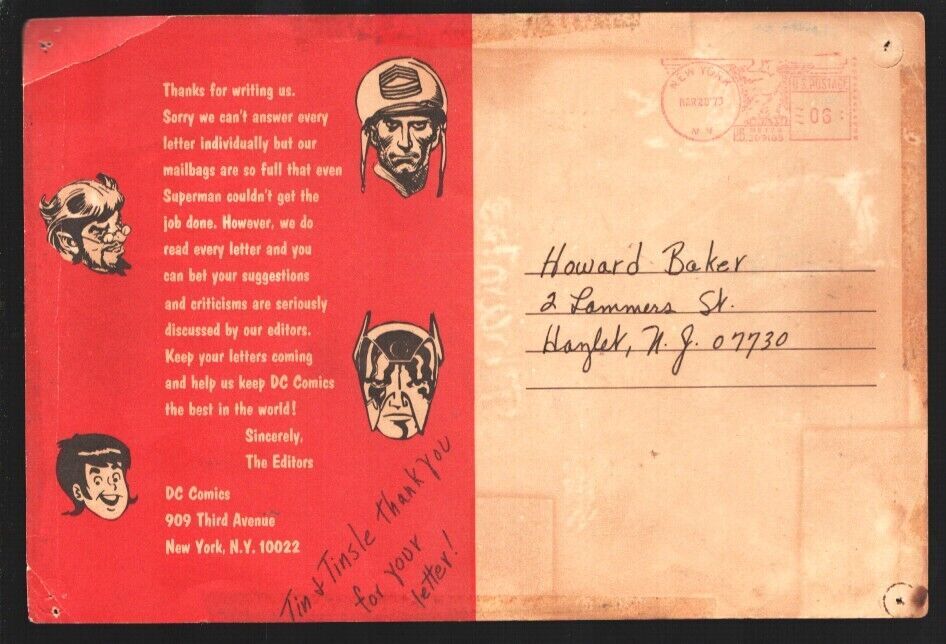 Thanks for writing us.
Sorry we can't answer every
letter individually but our
mailbags are so full that even
Superman couldn't get the
job done. However, we do
read every letter and you
can bet your suggestions
and criticisms are seriously
discussed by our editors.
Keep your letters coming
and help us keep DC Comics
the best in the world!
Sincerely,
The Editors
DC Comics
909 Third Avenue
New York, N.Y. 10022
Tin & Tinsle thank you
for your
letter!
NEW YORK
MAR20'73
N.Y.
U.S. POSTAGE
06
PB METER
Howard Baker
2 Lammers St.
Hazlet, N.J. 07730